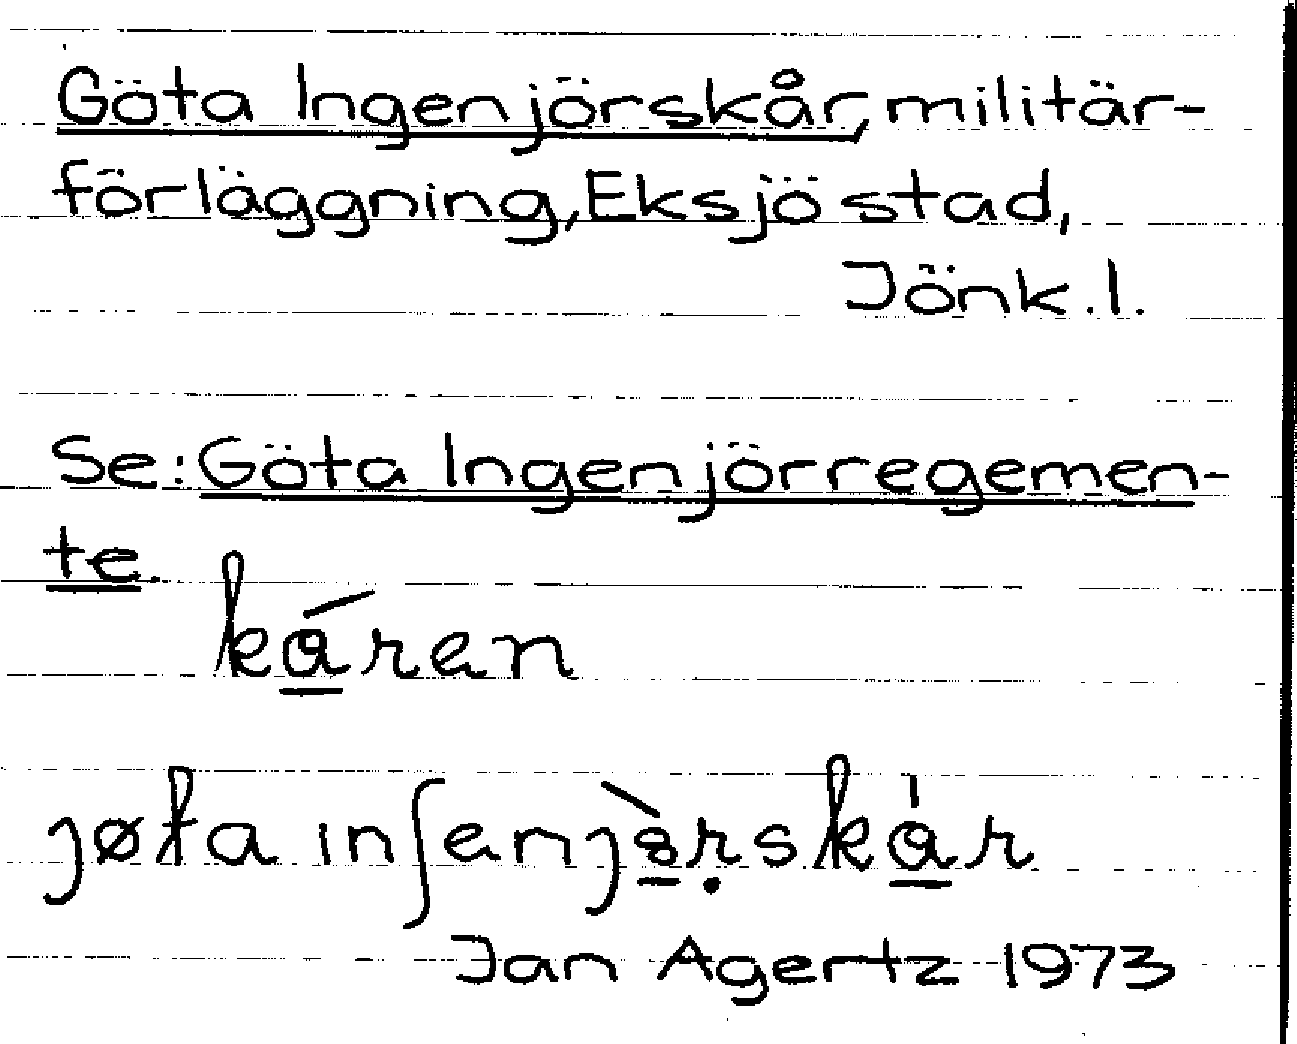 Göta Ingenjörskår, militär-
förläggning, Eksjö stad,
Jönk. l.
Se: Göta Ingenjörregemen-
te.
kǻren
jøta inʃenjò̱ṛskå̍r
Jan Agertz 1973